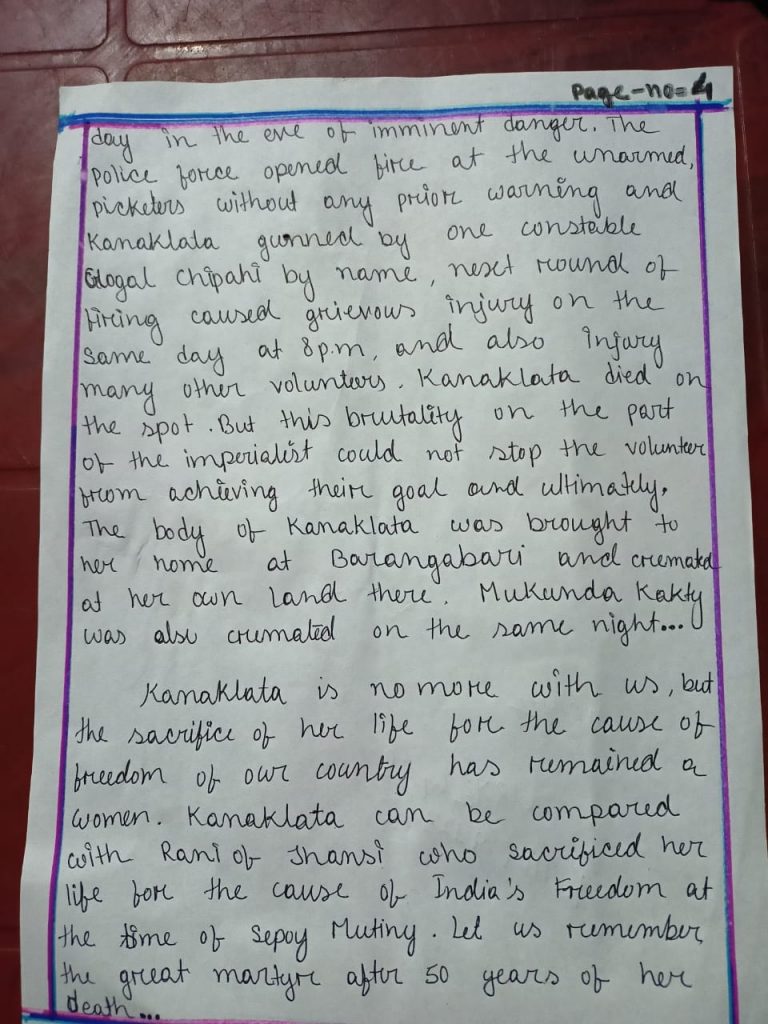 Page-no=4
day in the eve of imminent danger. The
police force opened fire at the unarmed,
picketers without any prior warning and
Kanaklata gunned by one constable
Glogal Chipahi by name, next round of
firing caused grievous injury on the
same day at 8 p.m, and also injury
many other volunters. Kanaklata died on
the spot. But this brutality on the part
of the imperialist could not stop the volunteer
from achieving their goal and ultimately.
The body of Kanaklata was brought to
her home at Barangabari and cremated
at her own land there. Mukunda Kakty
was also cremated on the same night...
Kanaklata is no more with us, but
the sacrifice of her life for the cause of
freedom of our country has remained a
women. Kanaklata can be compared
with Rani of Jhansi who sacrificed her
life for the cause of India's Freedom at
the time of Sepoy Mutiny. Let us remember
the great martyr after 50 years of her
death...